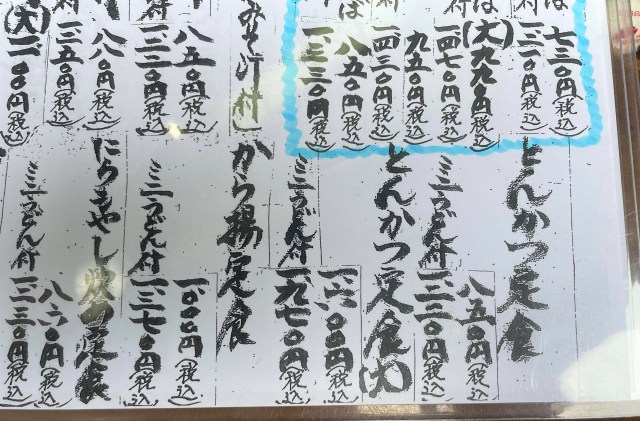 七三〇円(税込)
一、二一〇円(税込)
(大)九九〇円(税込)
一、四七〇円(税込)
九五〇円(税込)
一、四三〇円(税込)
八五〇円(税込)
一、三三〇円(税込)
みそ汁付
八五〇円(税込)
一、二二〇円(税込)
八八〇円(税込)
一、二五〇円(税込)
(大)一、一〇〇円(税込)
とんかつ定食
八五〇円(税込)
ミニうどん付
一、二二〇円(税込)
とんかつ定食(大)
一、六〇〇円(税込)
ミニうどん付
一、九七〇円(税込)
から揚定食
一、〇〇〇円(税込)
ミニうどん付
一、三七〇円(税込)
にらもやし炒め定食
八六〇円(税込)
ミニうどん付
一、二三〇円(税込)